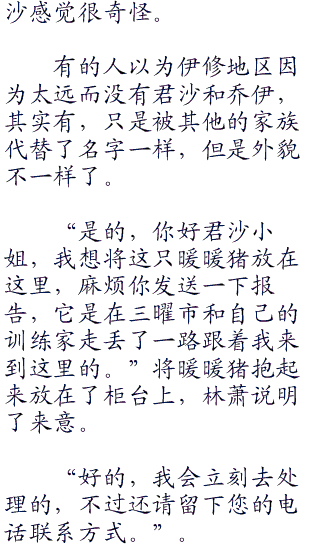 沙感觉很奇怪。
有的人以为伊修地区因
为太远而没有君沙和乔伊，
其实有，只是被其他的家族
代替了名字一样，但是外貌
不一样了。
“是的，你好君沙小
姐，我想将这只暖暖猪放在
这里，麻烦你发送一下报
告，它是在三曜市和自己的
训练家走丢了一路跟着我来
到这里的。”将暖暖猪抱起
来放在了柜台上，林萧说明
了来意。
“好的，我会立刻去处
理的，不过还请留下您的电
话联系方式。”。